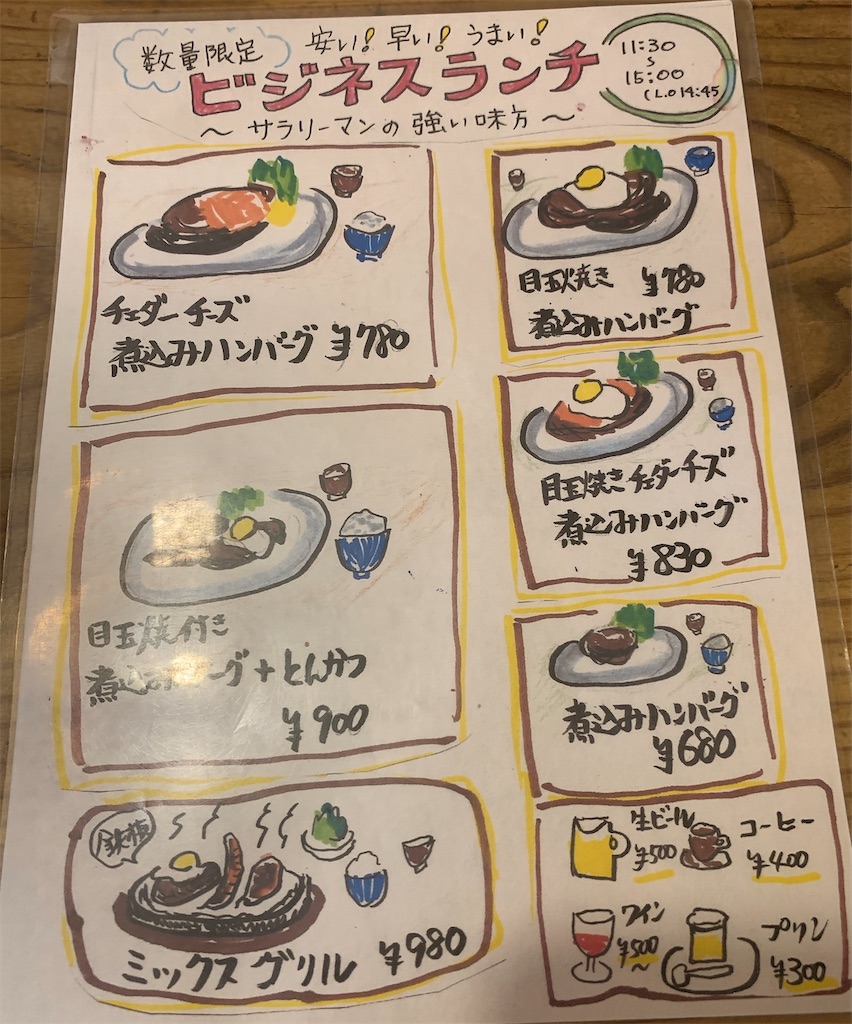 数量限定
安い! 早い! うまい!
ビジネスランチ
〜 サラリーマンの 強い味方 〜
11:30
〜
15:00
(L.O 14:45
チェダーチーズ
煮込みハンバーグ ¥780
目玉焼き ¥780
煮込みハンバーグ
目玉焼きチェダーチーズ
煮込みハンバーグ
¥830
目玉焼付き
煮込みハンバーグ+とんかつ
¥900
煮込みハンバーグ
¥680
鉄板
ミックスグリル ¥980
生ビール
¥500
コーヒー
¥400
ワイン
¥500
〜
プリン
¥300